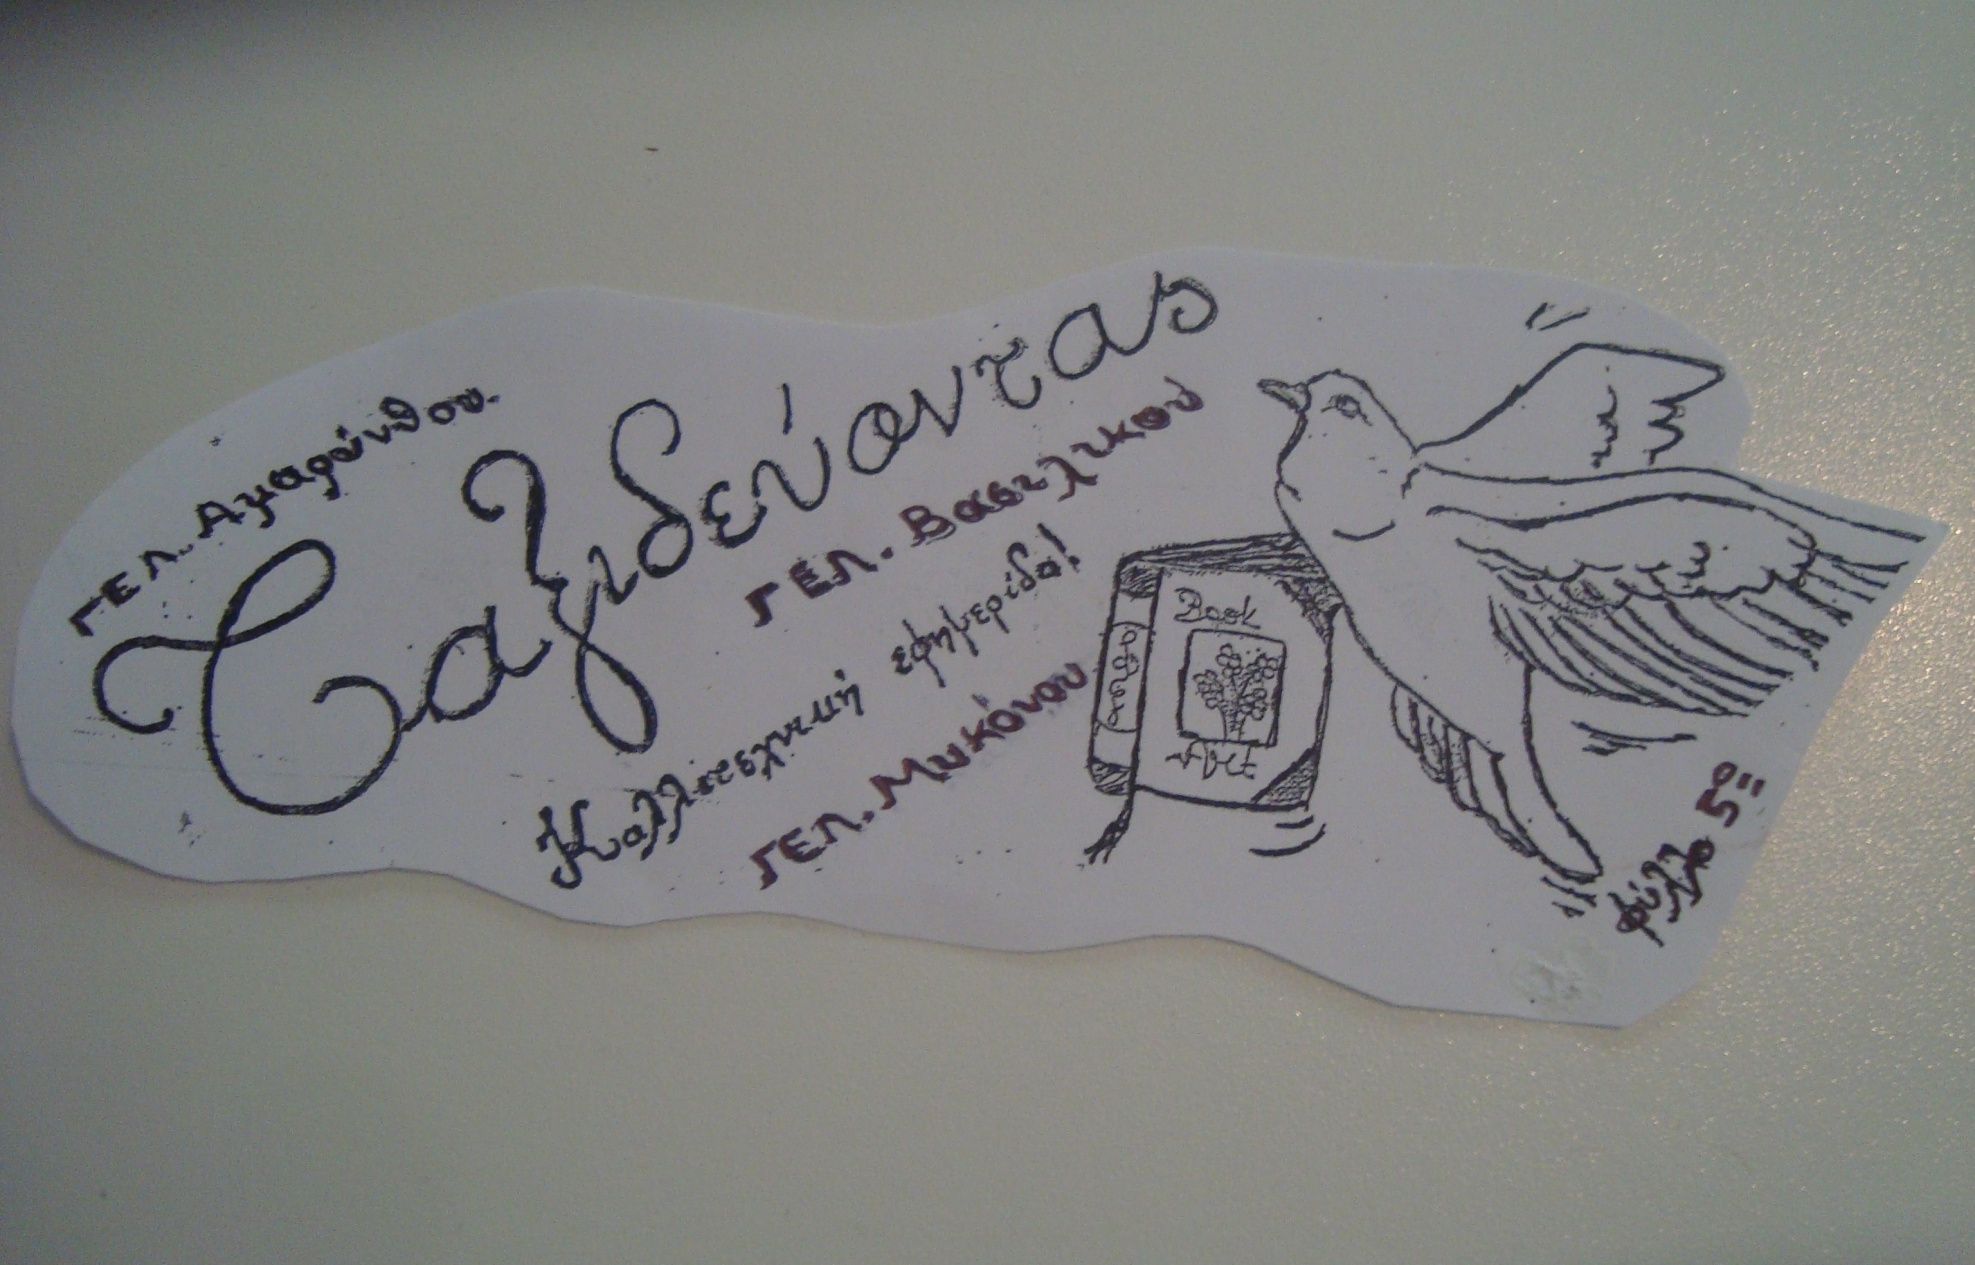 ΓΕΛ. Αμαρύνθου.
Ταξιδεύοντας
ΓΕΛ. Βασιλικού
Καλλιτεχνική εφημερίδα!
ΓΕΛ. Μυκόνου
Book
φύλλο 5º